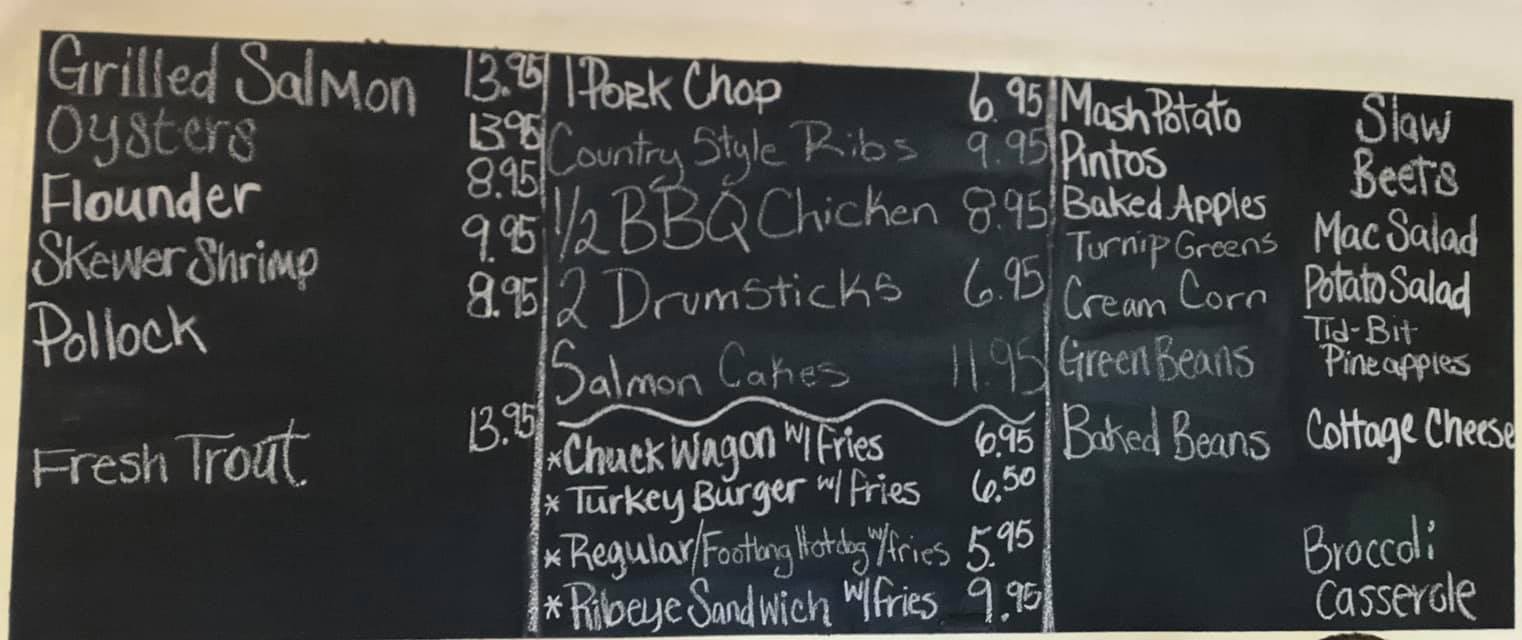 Grilled Salmon 13.95
Oysters 13.95
Flounder 8.95
Skewer Shrimp 9.95
Pollock 8.95
Fresh Trout 13.95
1 Pork Chop 6.95
Country Style Ribs 9.95
1/2 BBQ Chicken 8.95
2 Drumsticks 6.95
Salmon Cakes 11.95
*Chuck Wagon w/ Fries 6.95
* Turkey Burger w/ fries 6.50
* Regular/Footlong Hotdog w/fries 5.95
* Ribeye Sandwich w/fries 9.95
Mash Potato
Pintos
Baked Apples
Turnip Greens
Cream Corn
Green Beans
Baked Beans
Slaw
Beets
Mac Salad
Potato Salad
Tid-Bit
Pineapples
Cottage Cheese
Broccoli
Casserole